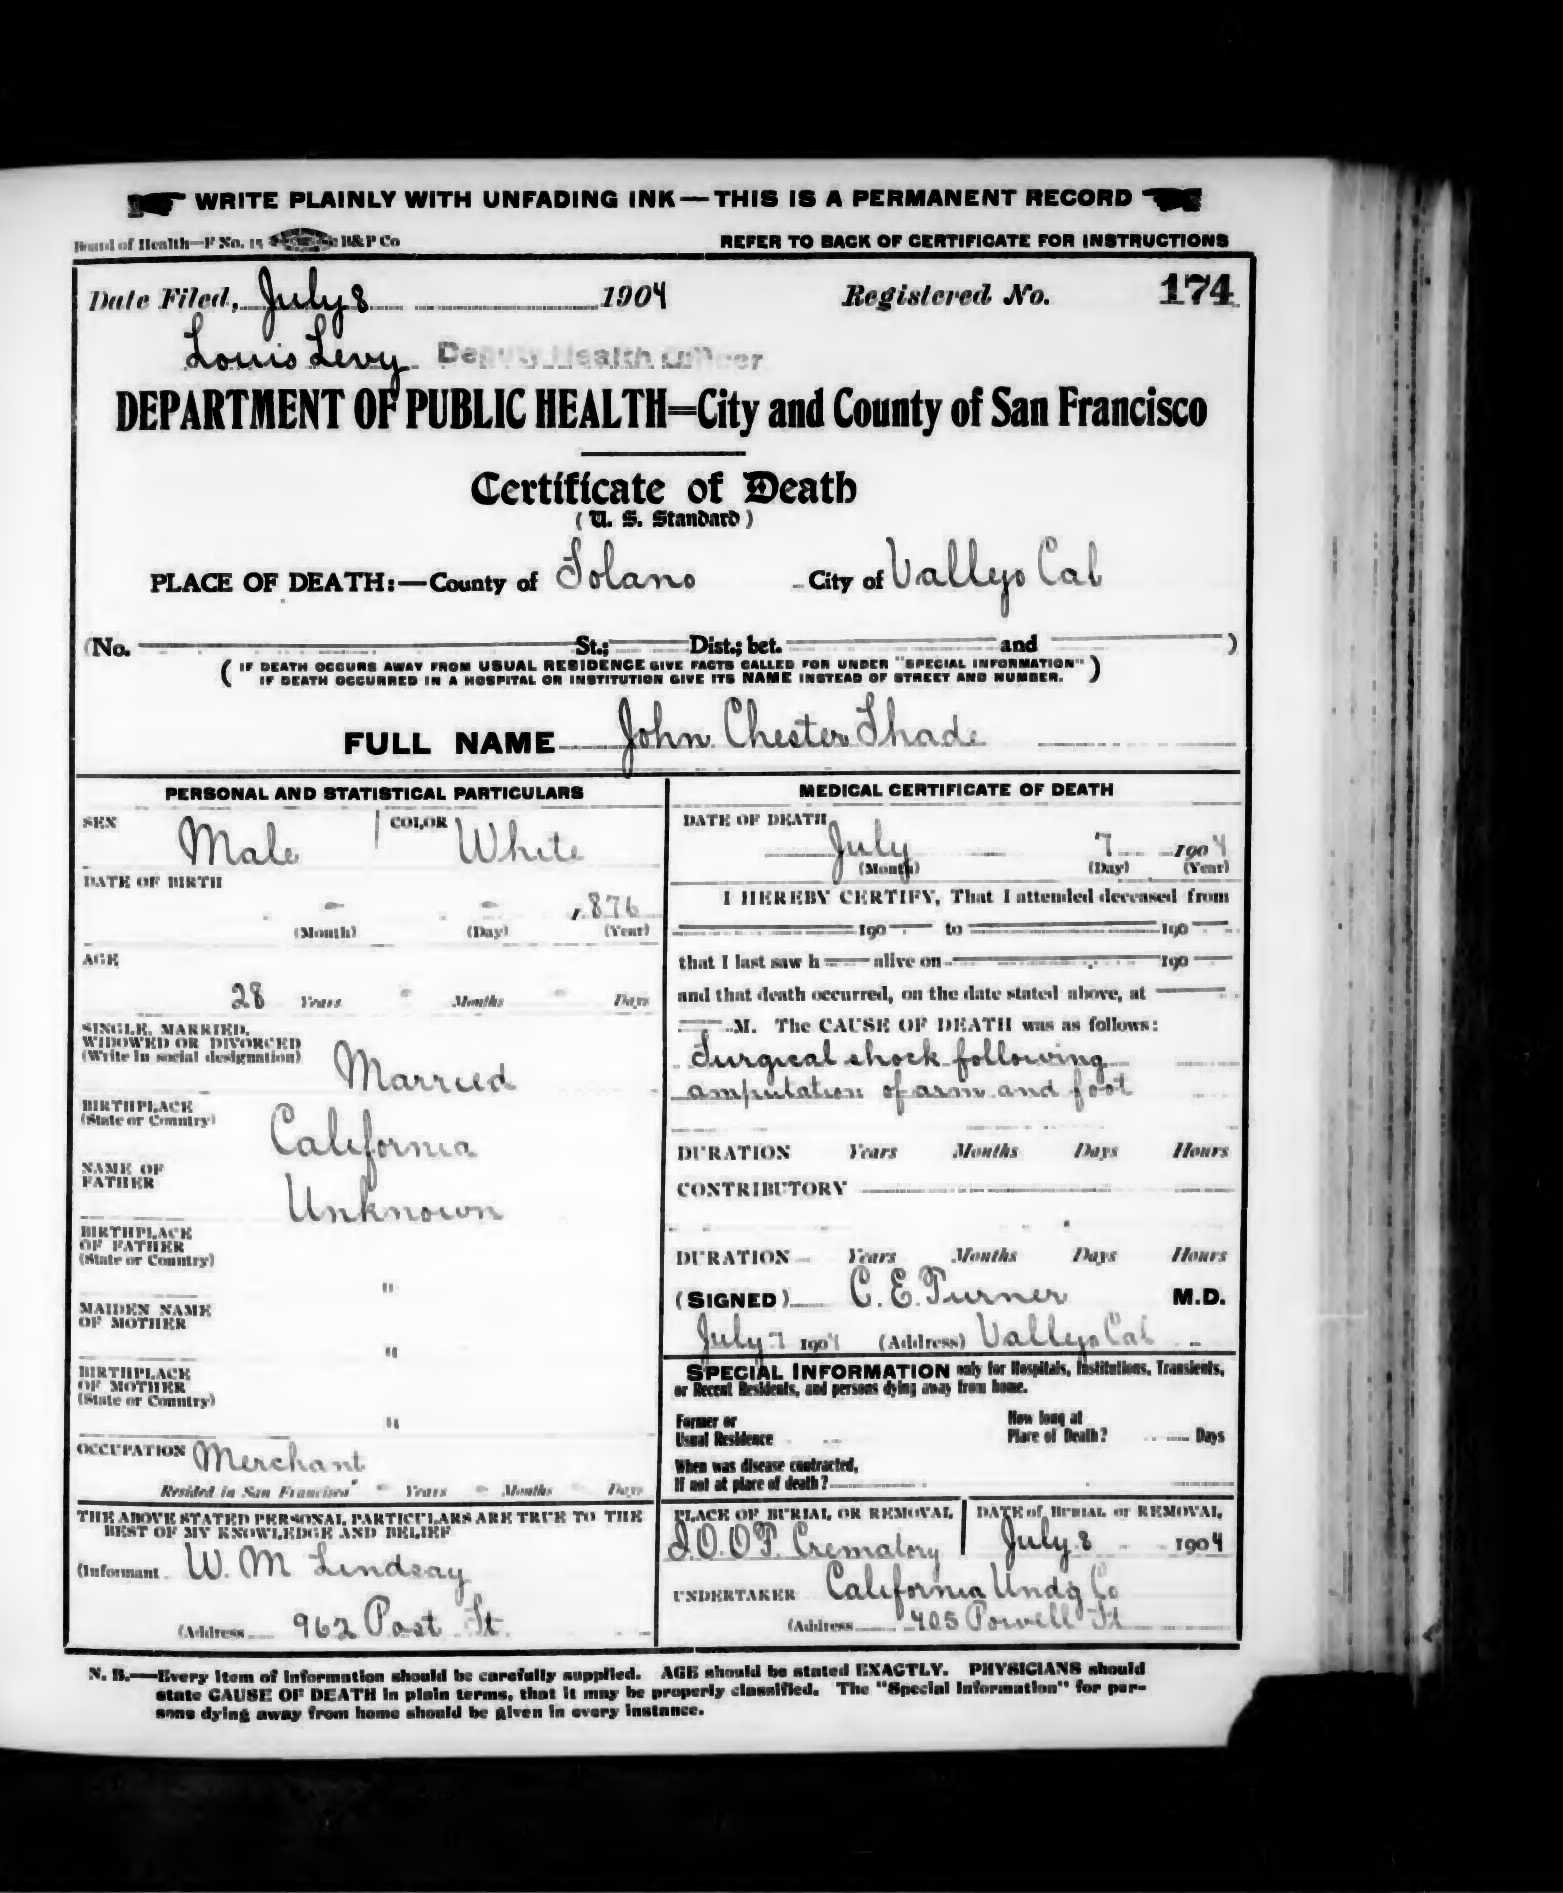 WRITE PLAINLY WITH UNFADING INK—THIS IS A PERMANENT RECORD
Board of Health—F No. 15 B&P Co
REFER TO BACK OF CERTIFICATE FOR INSTRUCTIONS
Date Filed, July 8 1904 Registered No. 174
Louis Levy Deputy Health Officer
DEPARTMENT OF PUBLIC HEALTH=City and County of San Francisco
Certificate of Death
(U. S. Standard)
PLACE OF DEATH:—County of Solano City of Vallejo Cal
(No. St.; Dist.; bet. and )
(IF DEATH OCCURS AWAY FROM USUAL RESIDENCE GIVE FACTS CALLED FOR UNDER "SPECIAL INFORMATION"
IF DEATH OCCURRED IN A HOSPITAL OR INSTITUTION GIVE ITS NAME INSTEAD OF STREET AND NUMBER.)
FULL NAME John Chester Shade
PERSONAL AND STATISTICAL PARTICULARS
SEX Male COLOR White
DATE OF BIRTH
- - 1876
(Month) (Day) (Year)
AGE
28 Years - Months - Days
SINGLE, MARRIED,
WIDOWED OR DIVORCED
(Write in social designation) Married
BIRTHPLACE
(State or Country) California
NAME OF
FATHER Unknown
BIRTHPLACE
OF FATHER
(State or Country)
"
MAIDEN NAME
OF MOTHER
"
BIRTHPLACE
OF MOTHER
(State or Country)
"
OCCUPATION Merchant
Resided in San Francisco - Years - Months - Days
THE ABOVE STATED PERSONAL PARTICULARS ARE TRUE TO THE
BEST OF MY KNOWLEDGE AND BELIEF
(Informant W. M Lindsay
(Address 962 Post St.
MEDICAL CERTIFICATE OF DEATH
DATE OF DEATH
July 7 1904
(Month) (Day) (Year)
I HEREBY CERTIFY, That I attended deceased from
190 to 190
that I last saw h alive on 190
and that death occurred, on the date stated above, at
M. The CAUSE OF DEATH was as follows:
Surgical shock following
amputation of arm and foot
DURATION Years Months Days Hours
CONTRIBUTORY
DURATION Years Months Days Hours
(SIGNED) C. E. Turner M.D.
July 7 1904 (Address) Vallejo Cal
SPECIAL INFORMATION only for Hospitals, Institutions, Transients,
or Recent Residents, and persons dying away from home.
Former or
Usual Residence
How long at
Place of Death? Days
When was disease contracted,
If not at place of death?
PLACE OF BURIAL OR REMOVAL
I.O.O.F. Crematory
DATE of BURIAL or REMOVAL
July 8 1904
UNDERTAKER California Undg Co
(Address 405 Powell St
N. B.—Every item of information should be carefully supplied. AGE should be stated EXACTLY. PHYSICIANS should
state CAUSE OF DEATH in plain terms, that it may be properly classified. The "Special Information" for per-
sons dying away from home should be given in every instance.